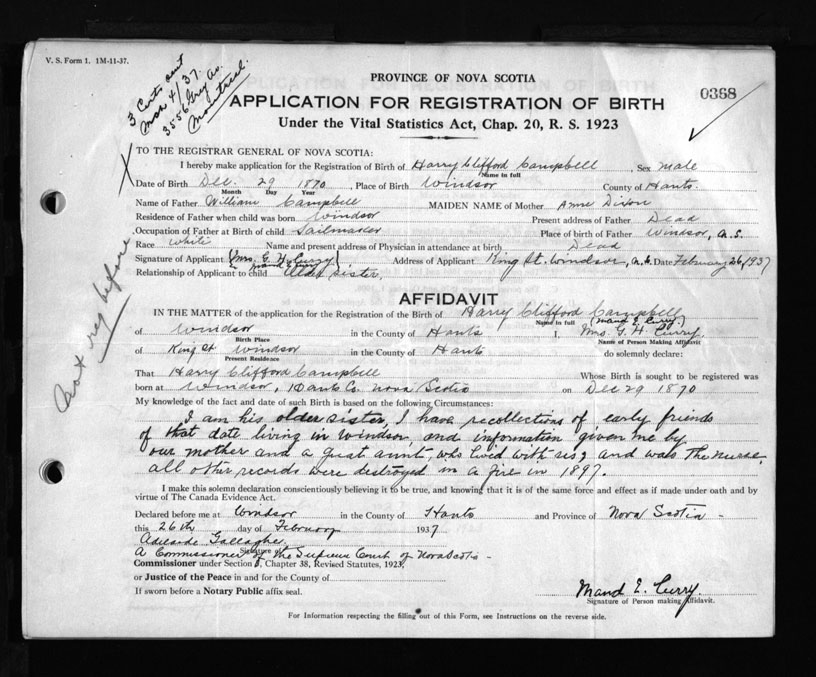 V. S. Form 1. 1M-11-37.
3 Certs sent
Mch 4/37.
3556 Grey Av.
Montreal.
PROVINCE OF NOVA SCOTIA
0368
APPLICATION FOR REGISTRATION OF BIRTH
Under the Vital Statistics Act, Chap. 20, R. S. 1923
TO THE REGISTRAR GENERAL OF NOVA SCOTIA:
I hereby make application for the Registration of Birth of Harry Clifford Campbell, Sex male
Name in full
Date of Birth Dec. 29 1870, Place of Birth Windsor County of Hants.
Month Day Year
Name of Father William Campbell MAIDEN NAME of Mother Anne Dixon
Residence of Father when child was born Windsor Present address of Father Dead
Occupation of Father at Birth of child Sailmaker Place of birth of Father Windsor, N.S.
Race White Name and present address of Physician in attendance at birth Dead
Signature of Applicant (Mrs. G. H. Curry), Address of Applicant King St. Windsor, N.S. Date February 26/1937
Relationship of Applicant to child Older Sister,
not reg before
AFFIDAVIT
IN THE MATTER of the application for the Registration of the Birth of Harry Clifford Campbell
Name in full (Maud E. Curry)
of Windsor in the County of Hants I, Mrs. G. H. Curry
Birth Place Name of Person Making Affidavit
of King St Windsor in the County of Hants do solemnly declare:
Present Residence
That Harry Clifford Campbell Whose Birth is sought to be registered was
born at Windsor, Hants Co. Nova Scotia on Dec 29 1870
My knowledge of the fact and date of such Birth is based on the following Circumstances:
I am his older sister, I have recollections of early friends
of that date living in Windsor, and information given me by
our mother and a great aunt, who lived with us, and was the nurse,
all other records were destroyed in a fire in 1897.
I make this solemn declaration conscientiously believing it to be true, and knowing that it is of the same force and effect as if made under oath and by
virtue of The Canada Evidence Act.
Declared before me at Windsor in the County of Hants and Province of Nova Scotia
this 26th day of February 1937
Adelaide Gallagher
Signature of
A Commissioner of the Supreme Court of Nova Scotia
Commissioner under Section, Chapter 38, Revised Statutes, 1923,
or Justice of the Peace in and for the County of
If sworn before a Notary Public affix seal.
Maud E. Curry.
Signature of Person making Affidavit.
For Information respecting the filling out of this Form, see Instructions on the reverse side.